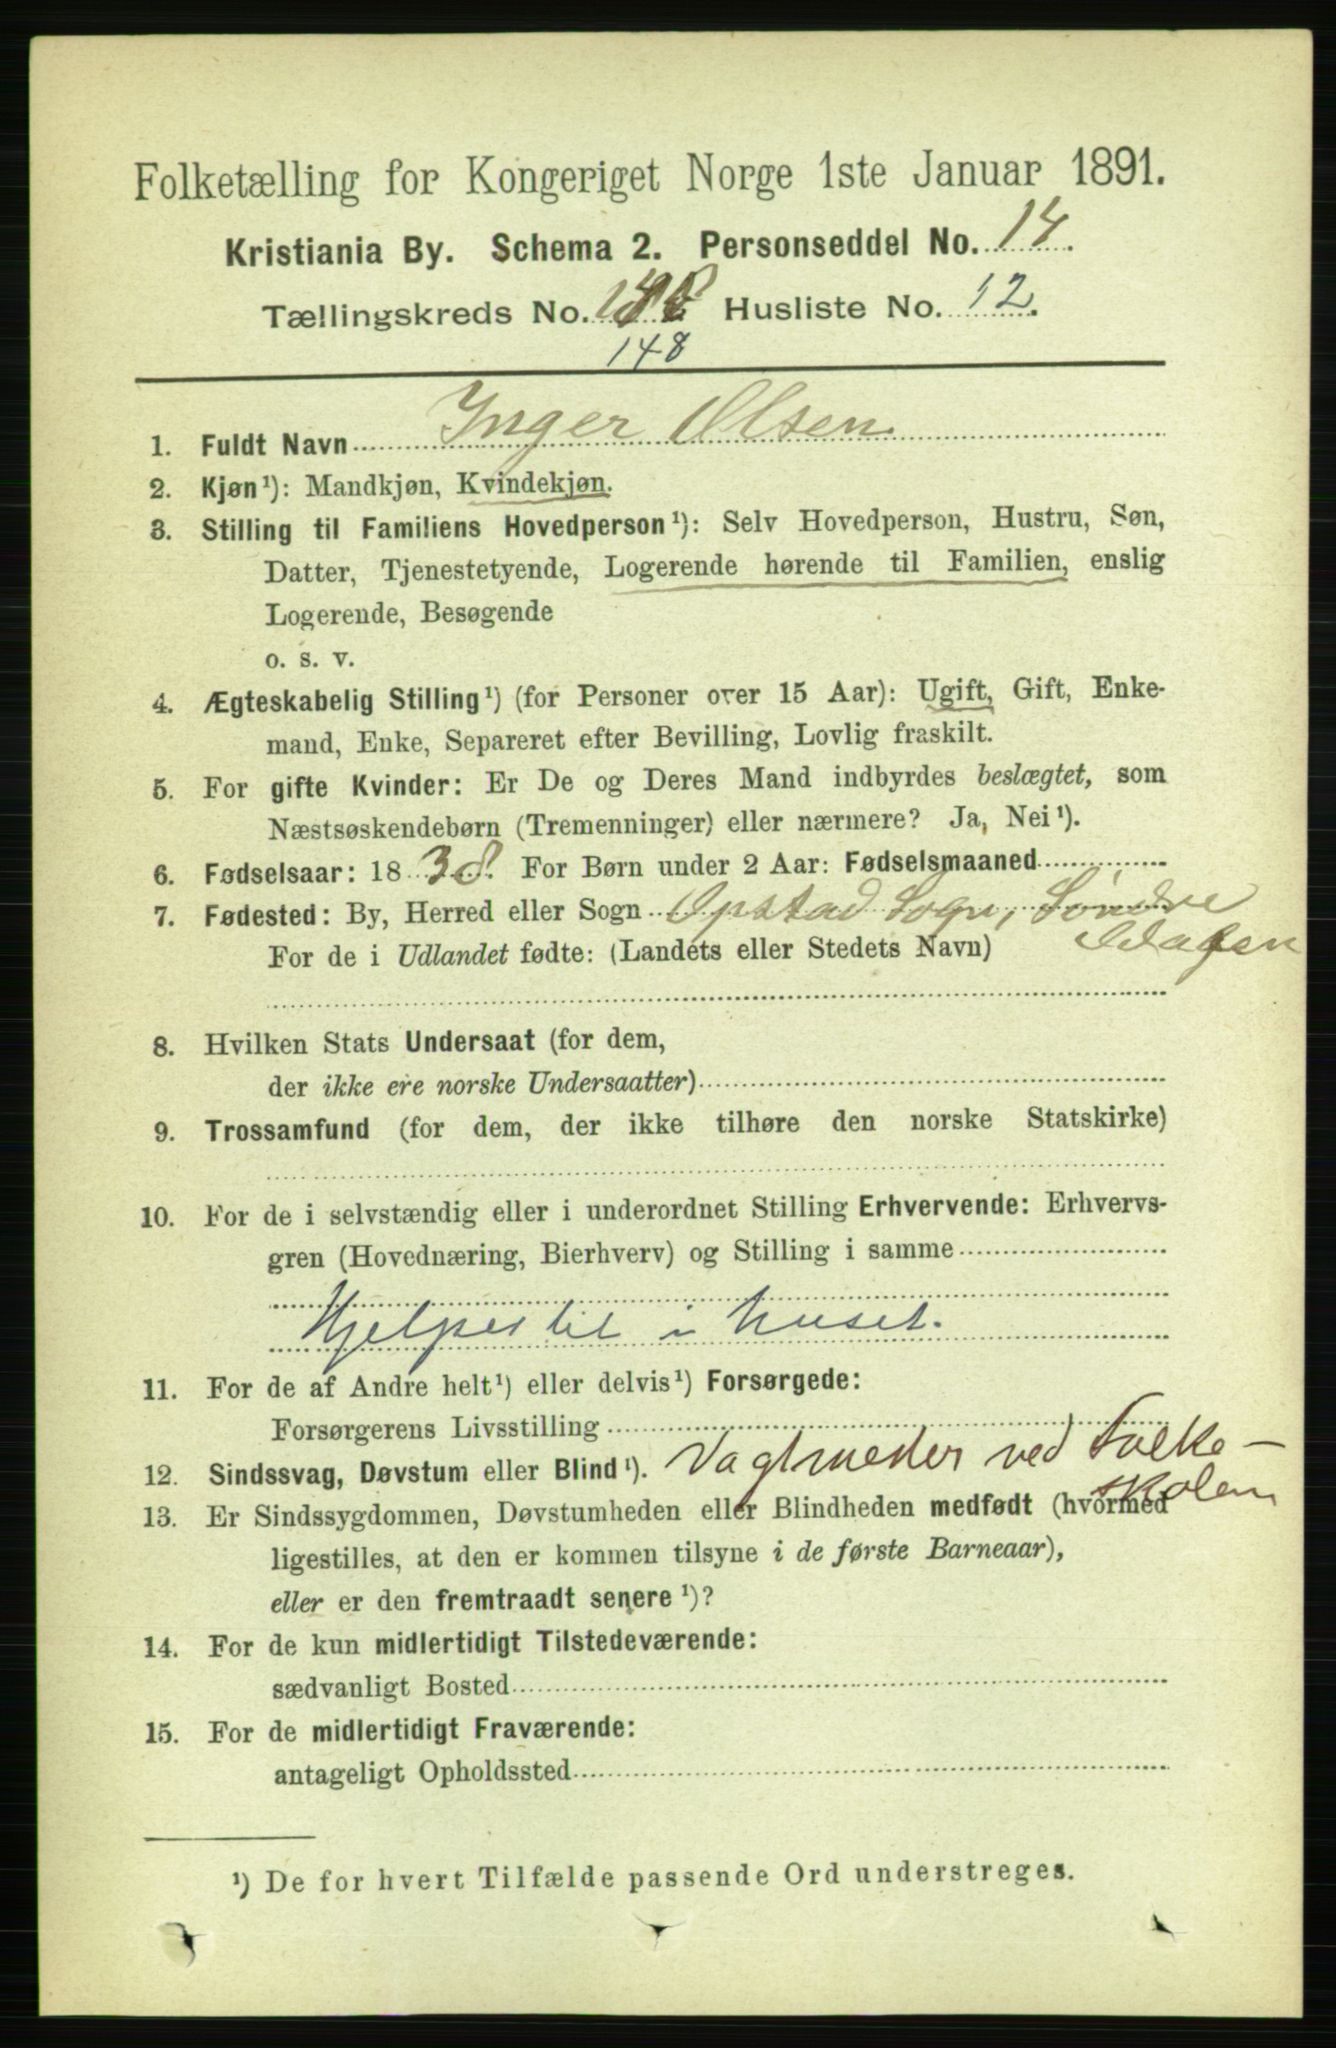 Folketælling for Kongeriget Norge 1ste Januar 1891.
Kristiania By. Schema 2. Personseddel No. 14.
Tællingskreds No. Husliste No. 12.
148
1. Fuldt Navn Inger Olsen
2. Kjøn¹): Mandkjøn, Kvindekjøn.
3. Stilling til Familiens Hovedperson¹): Selv Hovedperson, Hustru, Søn,
Datter, Tjenestetyende, Logerende hørende til Familien, enslig
Logerende, Besøgende
o. s. v.
4. Ægteskabelig Stilling¹) (for Personer over 15 Aar): Ugift, Gift, Enke-
mand, Enke, Separeret efter Bevilling, Lovlig fraskilt.
5. For gifte Kvinder: Er De og Deres Mand indbyrdes beslægtet, som
Næstsøskendebørn (Tremenninger) eller nærmere? Ja, Nei¹).
6. Fødselsaar: 1838. For Børn under 2 Aar: Fødselsmaaned
7. Fødested: By, Herred eller Sogn Opstad Sogn, Søndre
Odalen
For de i Udlandet fødte: (Landets eller Stedets Navn)
8. Hvilken Stats Undersaat (for dem,
der ikke ere norske Undersaatter)
9. Trossamfund (for dem, der ikke tilhøre den norske Statskirke)
10. For de i selvstændig eller i underordnet Stilling Erhvervende: Erhvervs-
gren (Hovednæring, Bierhverv) og Stilling i samme
Hjelper til i Huset.
11. For de af Andre helt¹) eller delvis¹) Forsørgede:
Forsørgerens Livsstilling
Vagtmester ved Folke-
skolen
12. Sindssvag, Døvstum eller Blind¹).
13. Er Sindssygdommen, Døvstumheden eller Blindheden medfødt (hvormed
ligestilles, at den er kommen tilsyne i de første Barneaar),
eller er den fremtraadt senere¹)?
14. For de kun midlertidigt Tilstedeværende:
sædvanligt Bosted
15. For de midlertidigt Fraværende:
antageligt Opholdssted
¹) De for hvert Tilfælde passende Ord understreges.